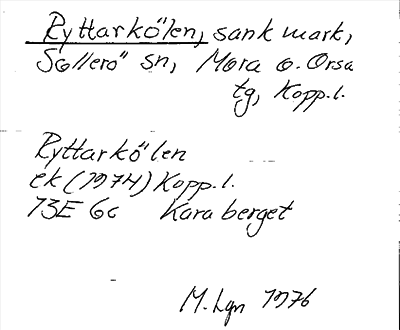 Ryttarkölen, sank mark,
Sollerö sn, Mora o. Orsa
tg, Kopp.l.
Ryttarkölen
ek (1974) Kopp.l.
13E 6c Karaberget
M. Lgn 1976